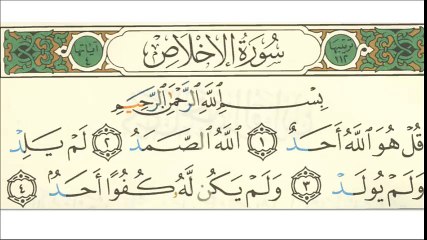 ترتيبها ١١٢ سُورَةُ الإِخْلَاصِ آياتها ٤
بِسْمِ اللَّهِ الرَّحْمَٰنِ الرَّحِيمِ
قُلْ هُوَ اللَّهُ أَحَدٌ ١ اللَّهُ الصَّمَدُ ٢ لَمْ يَلِدْ
وَلَمْ يُولَدْ ٣ وَلَمْ يَكُن لَّهُ كُفُوًا أَحَدٌ ٤